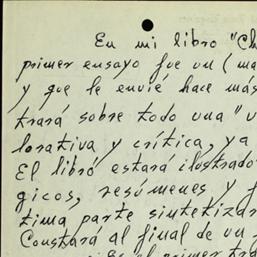 En mi libro "Ch
primer ensayo fue un (ma
y que le envié hace más
trará sobre todo una "v
lorativa y crítica, ya
El libro estará ilustrado
gicos, resúmenes y f
tima parte sintetizar
Constará al final de un
Es el primer tra